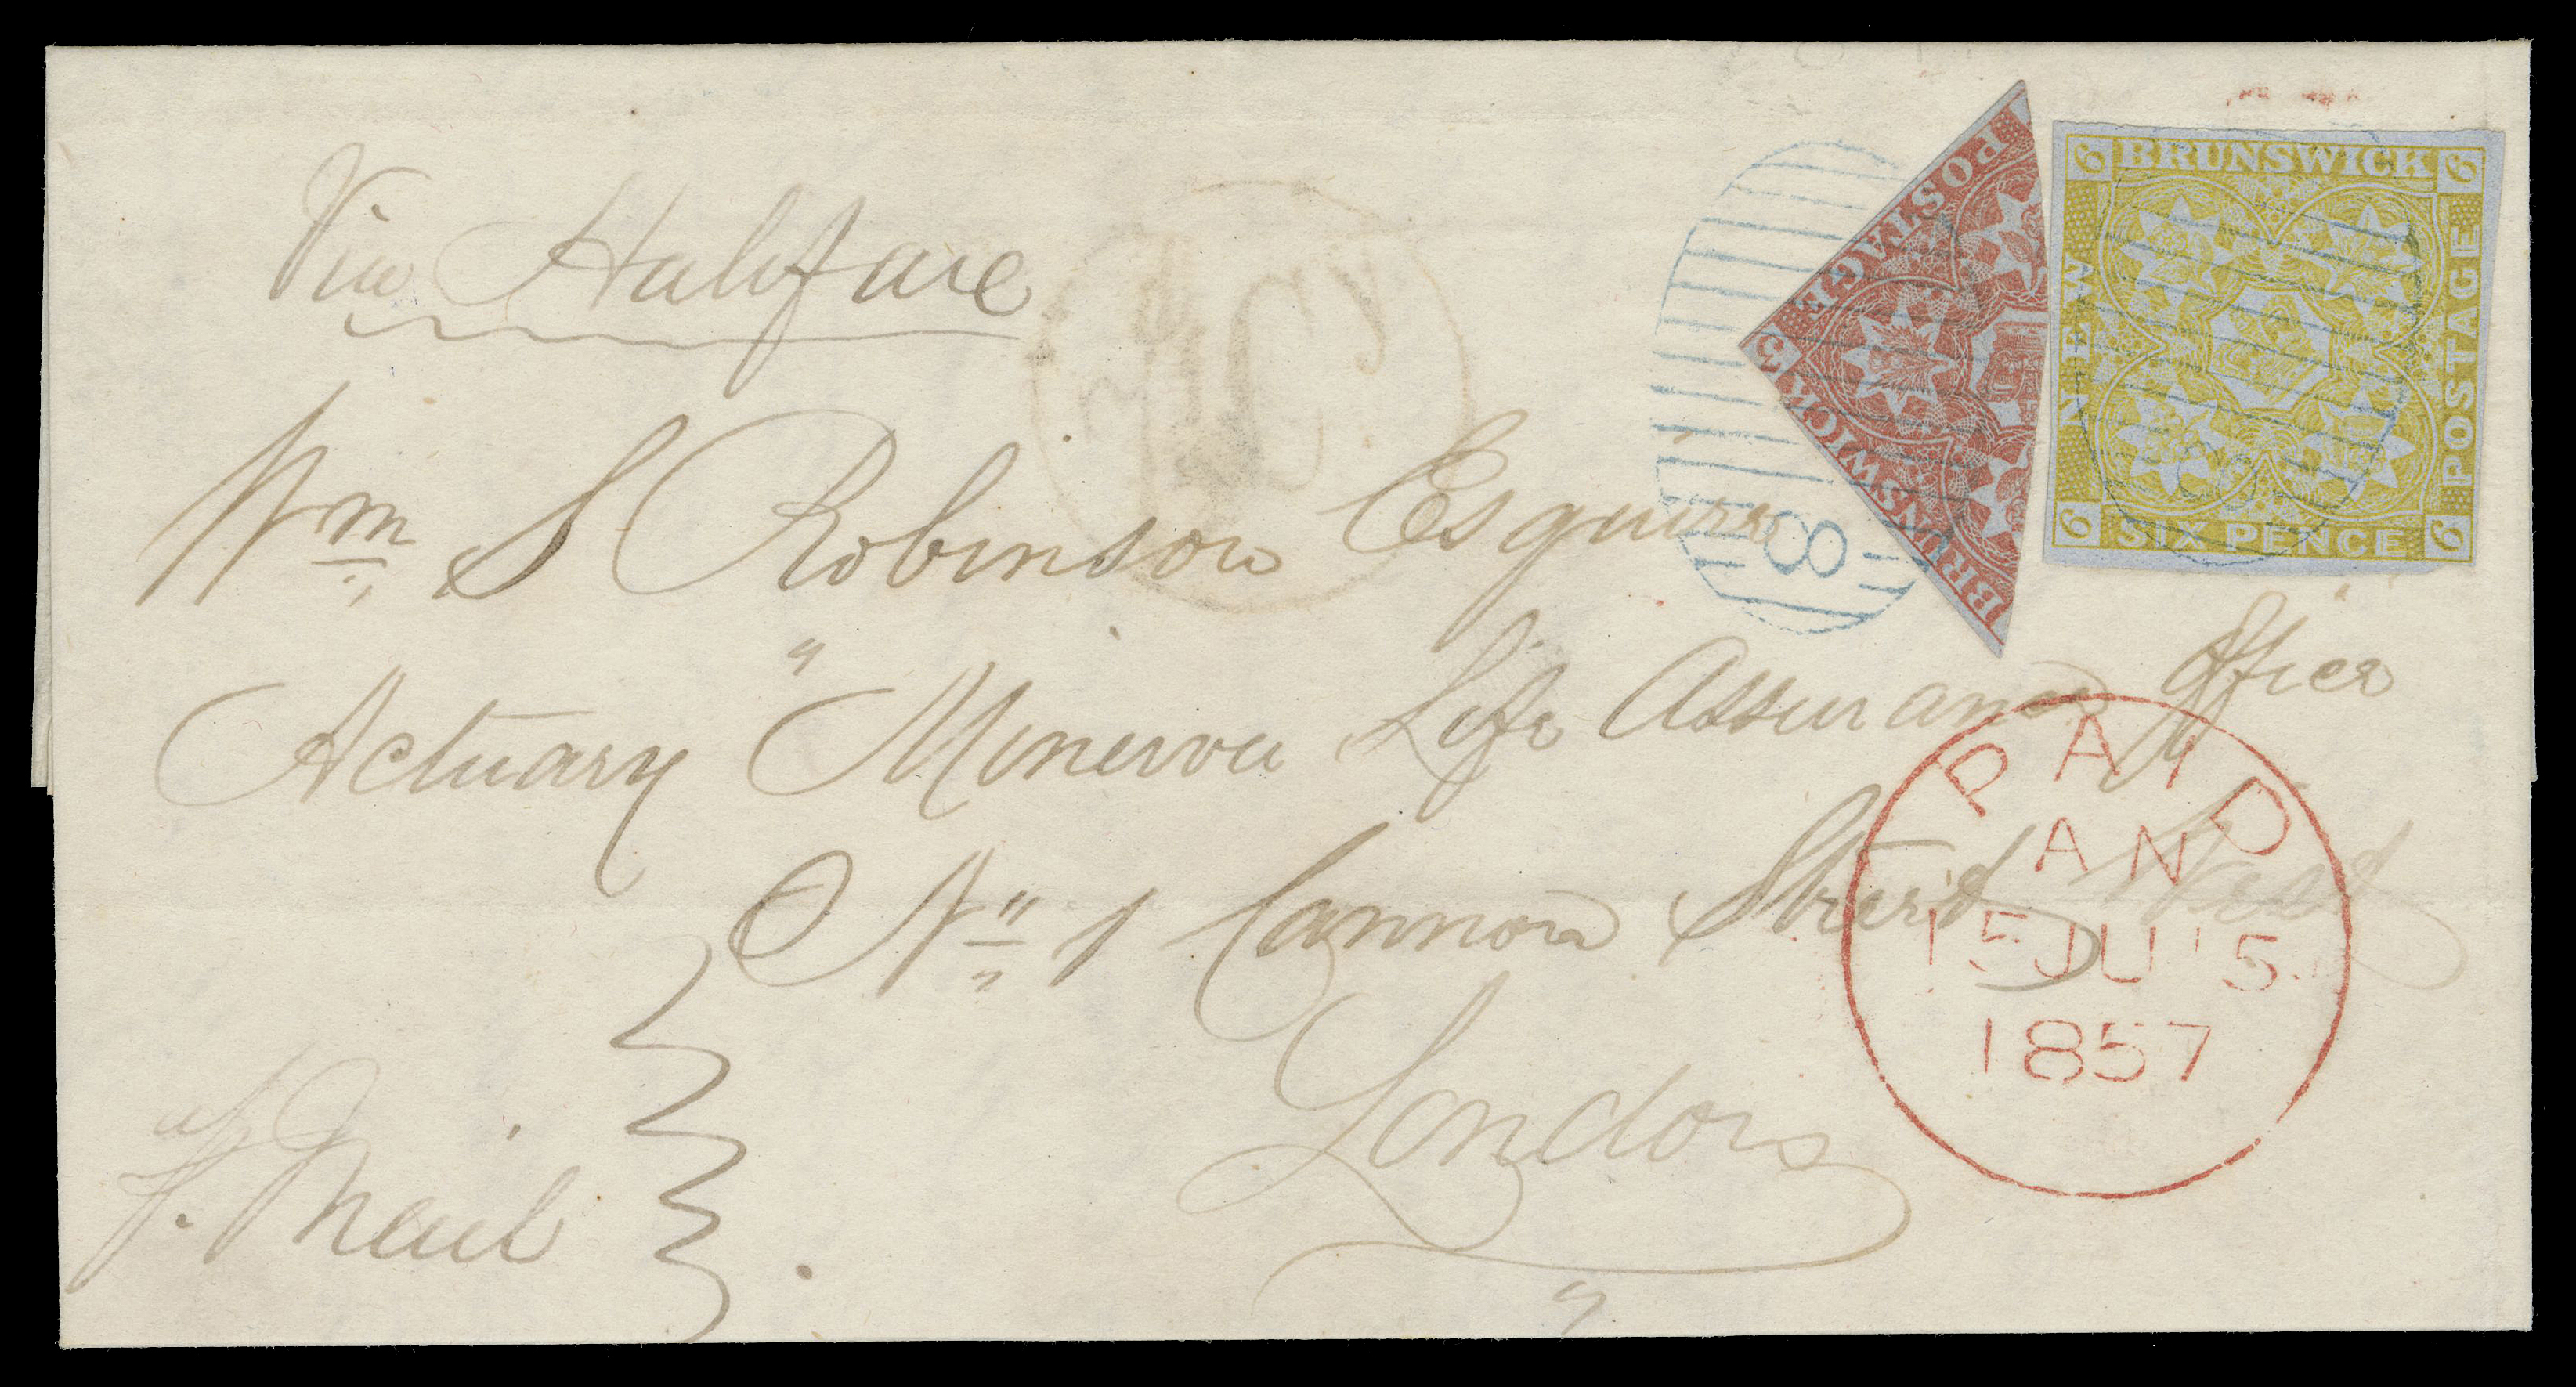 Via Halifax
Wm S Robinson Esquire
Actuary "Minerva Life Assurance Office
No 1 Cannon Street West
London"
Mail
POSTAGE
3
BRUNSWICK
8
6 BRUNSWICK 6
NEW
POSTAGE
6 SIX PENCE 6
PAID
AN
15 JU 5
1857